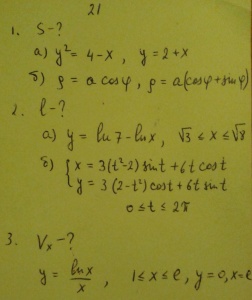 21
1. S-?
а) y² = 4-x, y = 2+x
б) ρ = a cosφ, ρ = a(cosφ+sinφ)
2. l-?
а) y = ln7-lnx, √3 ≤ x ≤ √8
б) { x = 3(t²-2)sint+6t cost
y = 3(2-t²)cost+6t sint
0≤t≤2π
3. Vx-?
y = lnx/x, 1≤x≤e, y=0, x=e